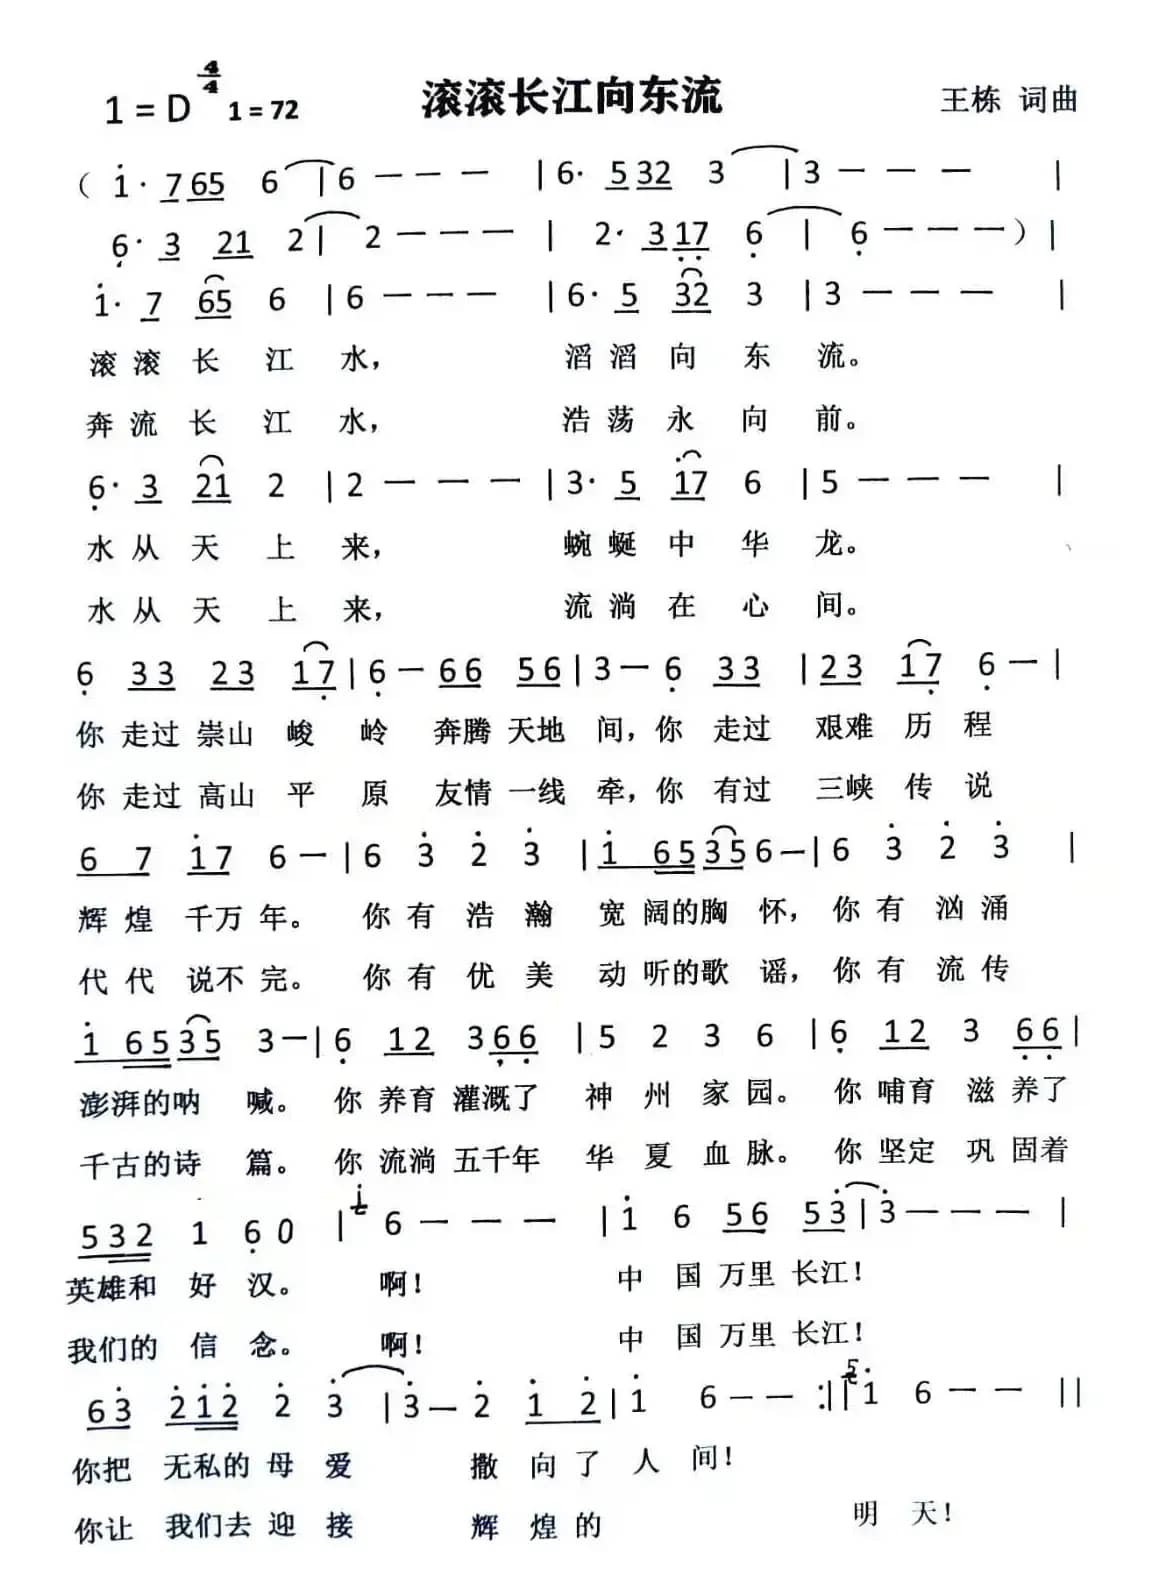 1 = D 4/4 1 = 72 滚滚长江向东流 王栋 词曲
( i· 7 65 6 | 6 — — — | 6· 5 32 3 | 3 — — — |
6· 3 21 2 | 2 — — — | 2· 3 17 6 | 6 — — — ) |
i· 7 65 6 | 6 — — — | 6· 5 32 3 | 3 — — — |
滚 滚 长 江 水， 滔 滔 向 东 流。
奔 流 长 江 水， 浩 荡 永 向 前。
6· 3 21 2 | 2 — — — | 3· 5 i7 6 | 5 — — — |
水 从 天 上 来， 蜿 蜒 中 华 龙。
水 从 天 上 来， 流 淌 在 心 间。
6 33 23 17 | 6 — 66 56 | 3 — 6 33 | 23 17 6 — |
你 走过 崇山 峻 岭 奔腾 天地 间，你 走过 艰难 历 程
你 走过 高山 平 原 友情 一线 牵，你 有过 三峡 传 说
6 7 i7 6 — | 6 3̇ 2̇ 3̇ | i 65 35 6 — | 6 3̇ 2̇ 3̇ |
辉 煌 千万 年。 你 有 浩 瀚 宽 阔的胸 怀，你 有 汹 涌
代 代 说不 完。 你 有 优 美 动 听的歌 谣，你 有 流 传
i 65 35 3 — | 6 12 3 66 | 5 2 3 6 | 6 12 3 66 |
澎湃的呐 喊。 你 养育 灌溉了 神 州 家 园。 你 哺育 滋 养了
千古的诗 篇。 你 流淌 五千年 华 夏 血 脉。 你 坚定 巩 固着
532 1 6 0 | i 6 — — — | i 6 56 53̇ | 3̇ — — — |
英雄和 好 汉。 啊！ 中 国 万里 长江！
我们的 信 念。 啊！ 中 国 万里 长江！
63̇ 2̇i2̇ 2̇ 3̇ | 3̇ — 2̇ i 2̇ | i 6 — — :|| 5 i 6 — — ||
你把 无私的 母 爱 撒 向 了 人 间！
你让 我们去 迎 接 辉 煌 的 明 天！